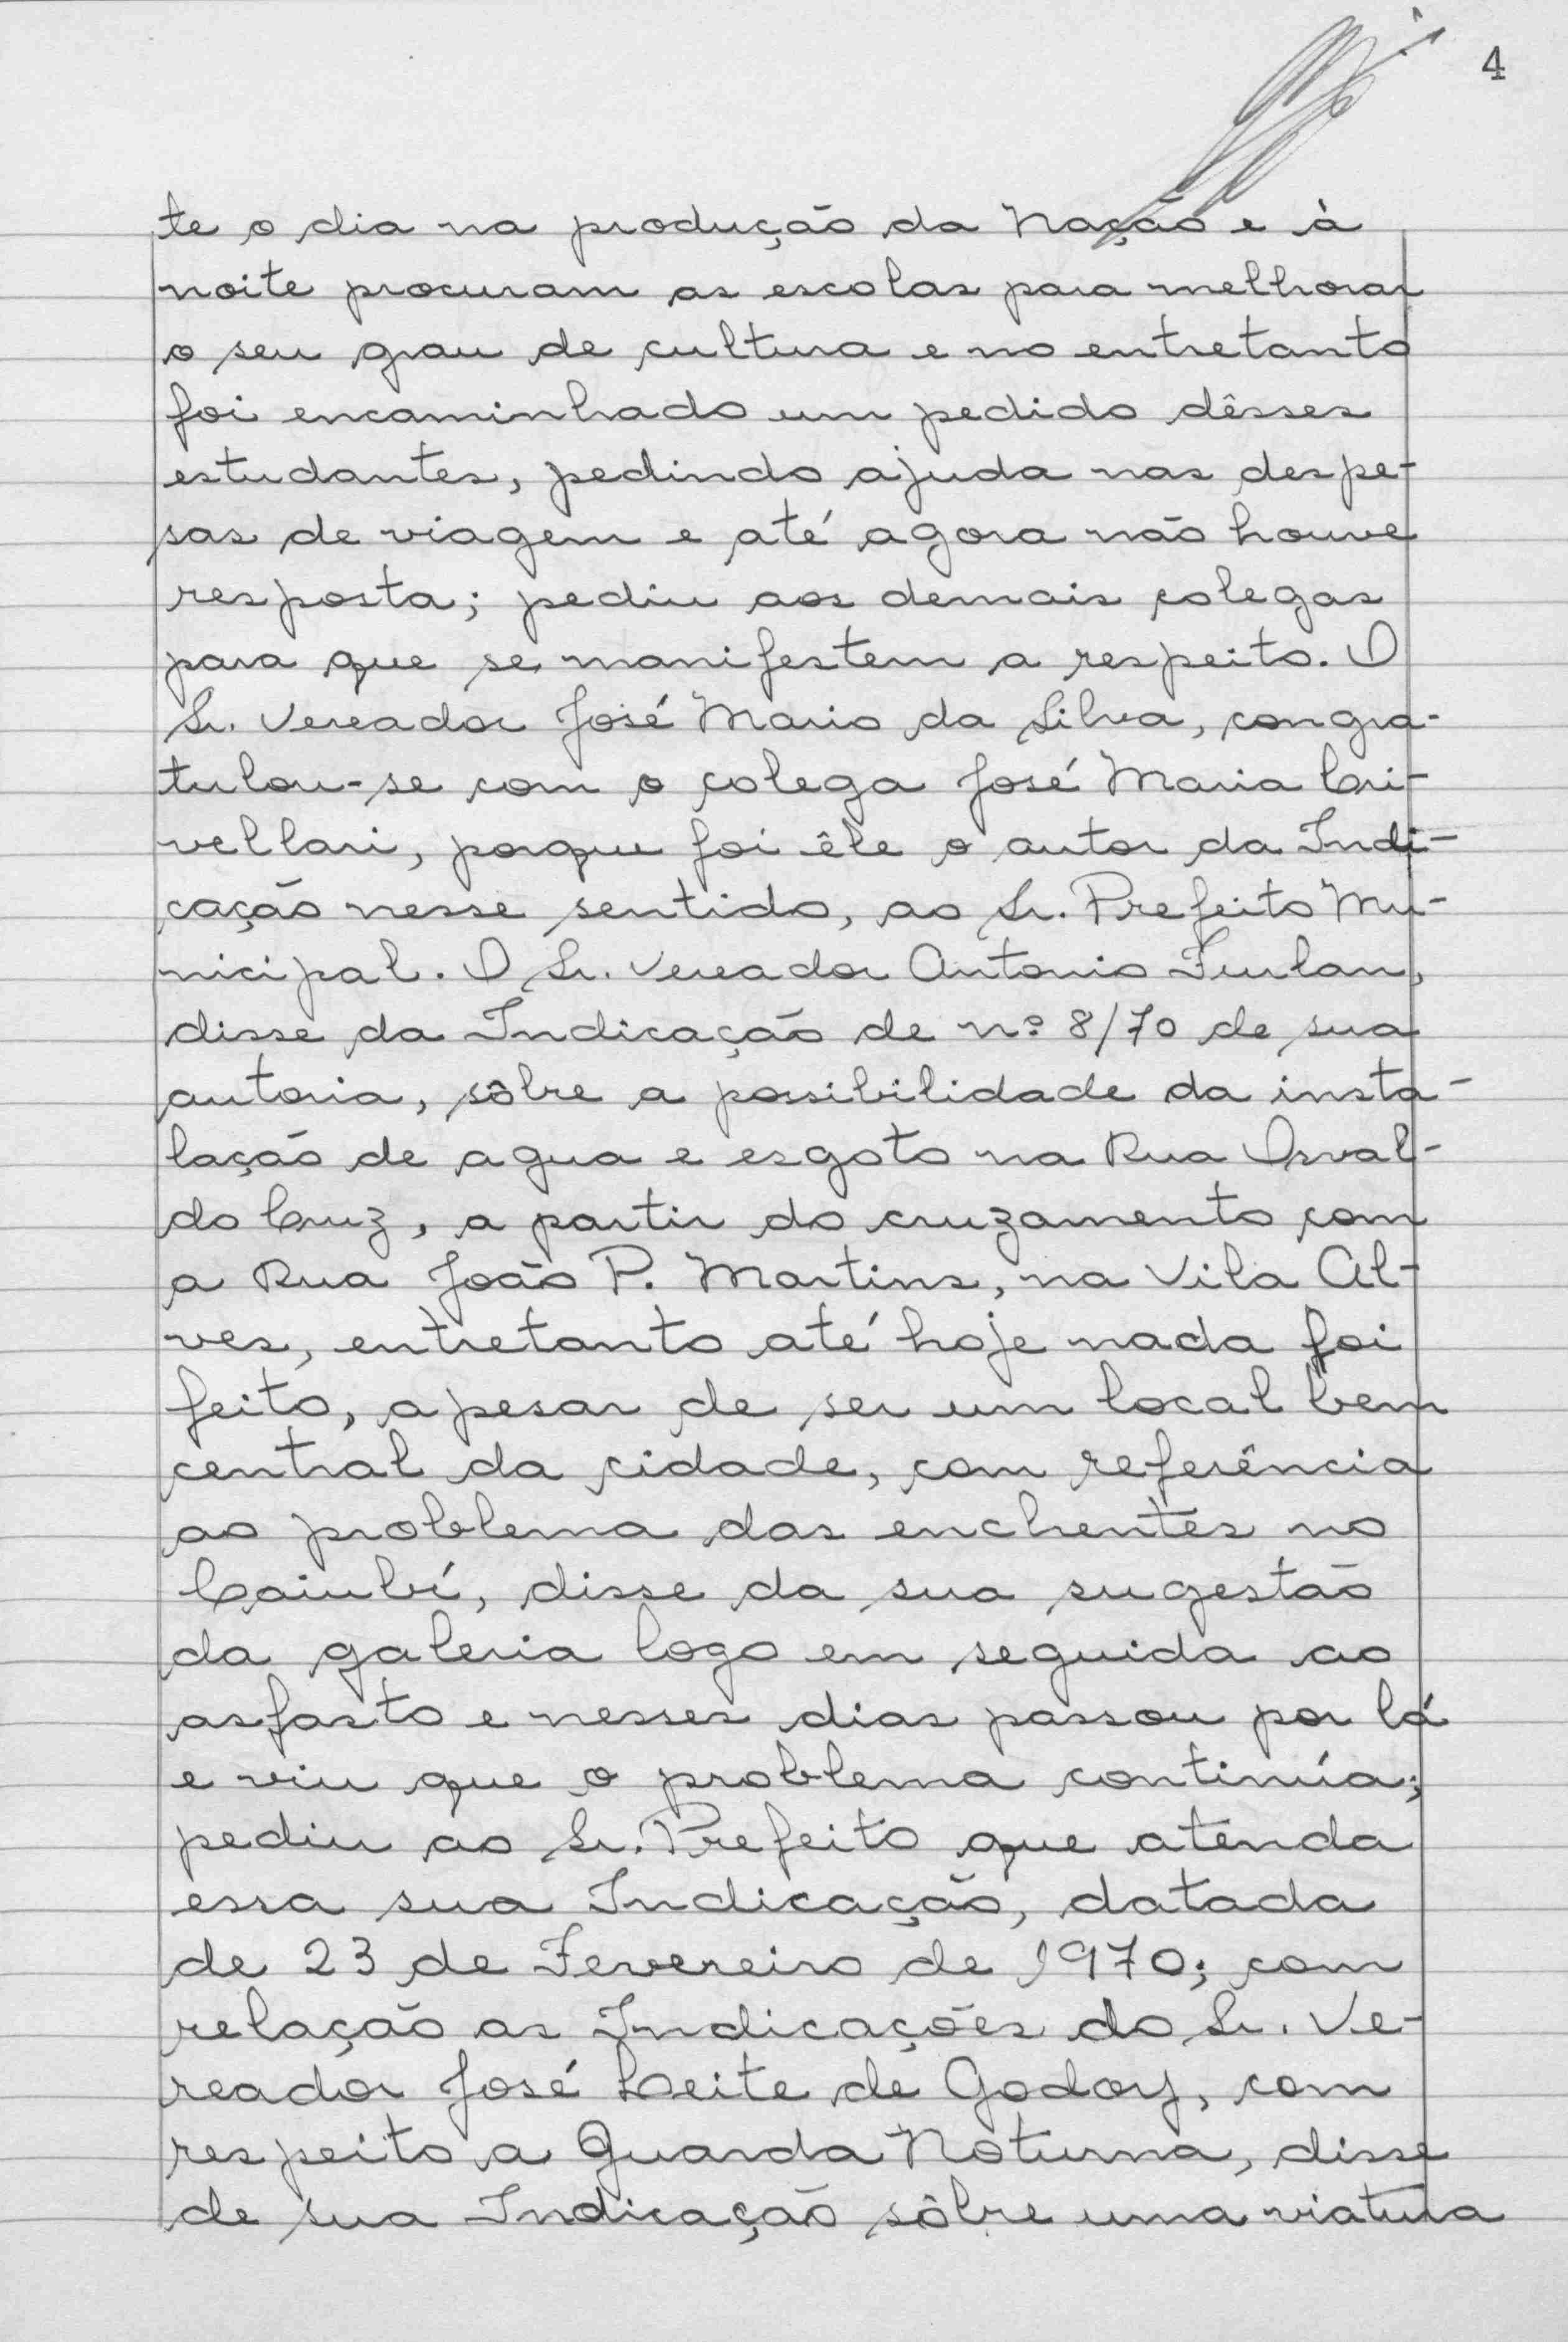 4
te o dia na produção da Nação e à
noite procuram as escolas para melhorar
o seu grau de cultura e no entretanto
foi encaminhado um pedido dêsses
estudantes, pedindo ajuda nas despe-
sas de viagem e até agora não houve
resposta; pediu aos demais colegas
para que se manifestem a respeito. O
Sr. Vereador José Mario da Silva, congra-
tulou-se com o colega José Maria Cri-
vellari, porque foi êle o autor da Indi-
cação nesse sentido, ao Sr. Prefeito Mu-
nicipal. O Sr. Vereador Antonio Furlan,
disse da Indicação de nº 8/70 de sua
autoria, sôbre a possibilidade da insta-
lação de agua e esgoto na Rua Osval-
do Cruz, a partir do cruzamento com
a Rua João P. Martins, na Vila Al-
ves, entretanto até hoje nada foi
feito, apesar de ser um local bem
central da cidade, com referência
ao problema das enchentes no
Caiubí, disse da sua sugestão
da galeria logo em seguida ao
asfasto e nesses dias passou por lá
e viu que o problema continúa;
pediu ao Sr. Prefeito que atenda
essa sua Indicação, datada
de 23 de Fevereiro de 1970; com
relação as Indicações do Sr. Ve-
reador José Leite de Godoy, com
respeito a Guarda Noturna, disse
de sua Indicação sôbre uma viatura